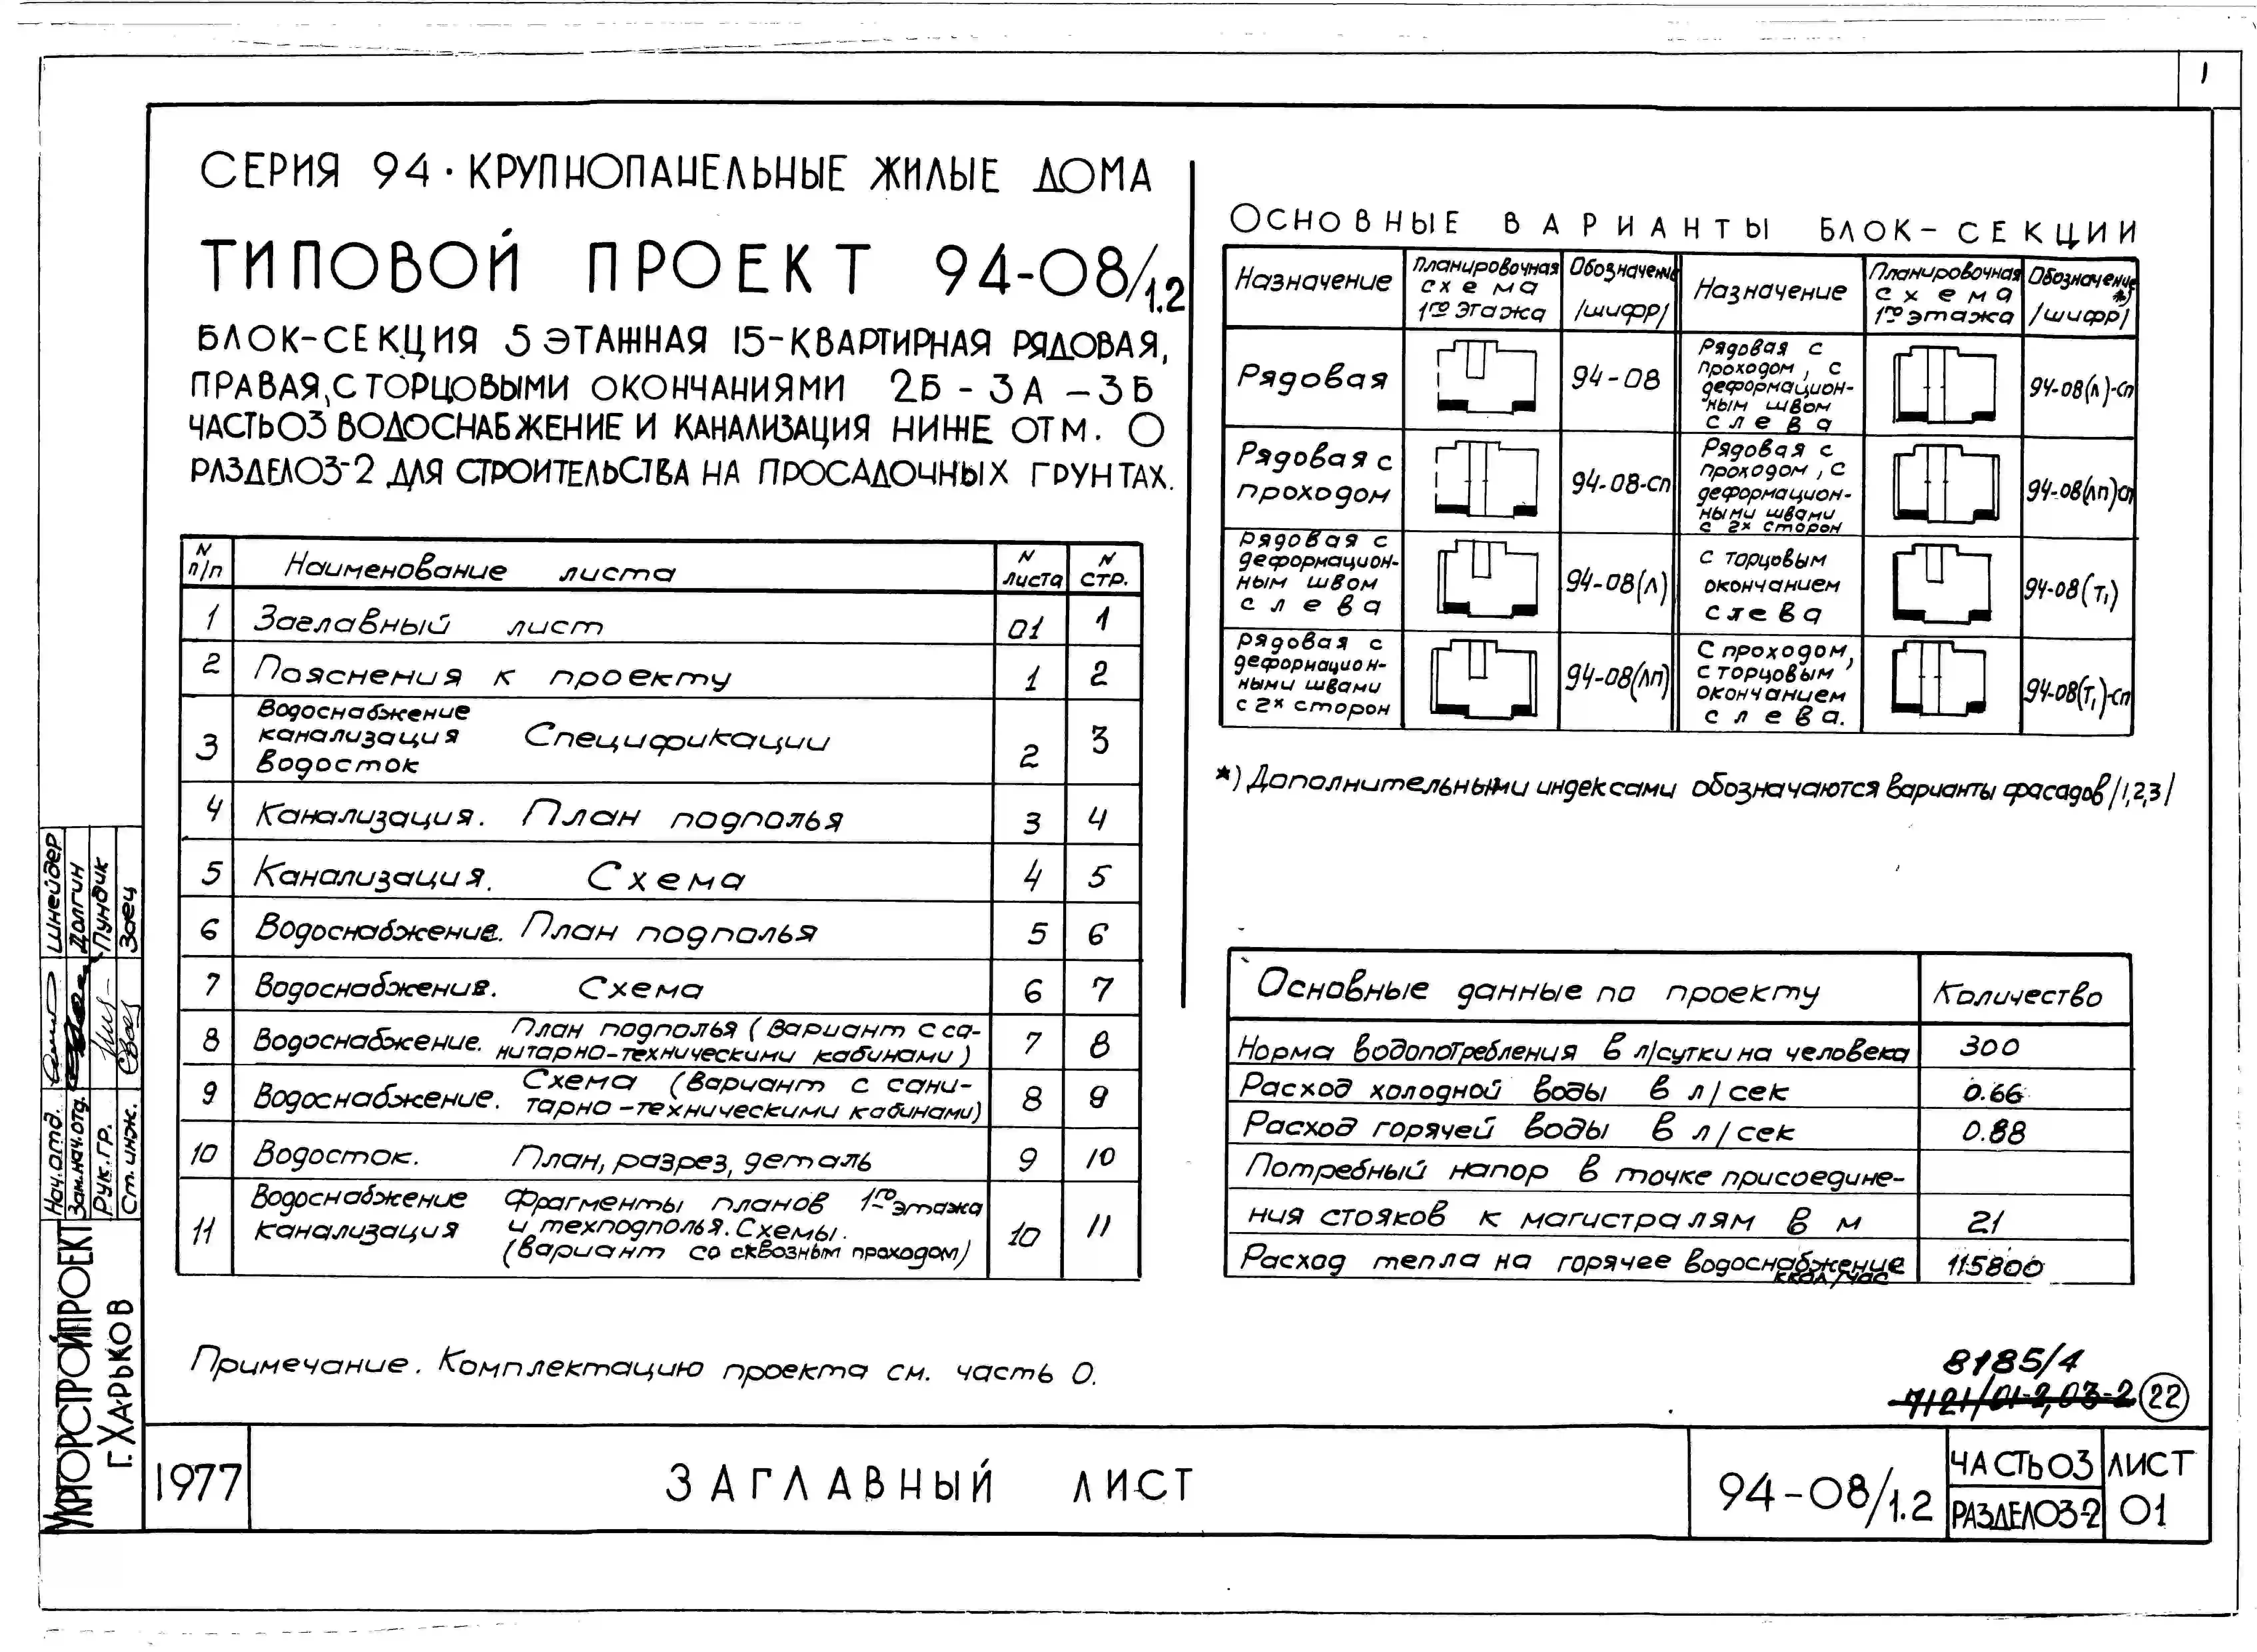 1
СЕРИЯ 94 · КРУПНОПАНЕЛЬНЫЕ ЖИЛЫЕ ДОМА
ТИПОВОЙ ПРОЕКТ 94-08/1.2
БЛОК-СЕКЦИЯ 5 ЭТАЖНАЯ 15-КВАРТИРНАЯ РЯДОВАЯ,
ПРАВАЯ, С ТОРЦОВЫМИ ОКОНЧАНИЯМИ 2Б - 3А - 3Б
ЧАСТЬ 03 ВОДОСНАБЖЕНИЕ И КАНАЛИЗАЦИЯ НИЖЕ ОТМ. О
РАЗДЕЛ 03-2 ДЛЯ СТРОИТЕЛЬСТВА НА ПРОСАДОЧНЫХ ГРУНТАХ.
N п/п Наименование листа N листа N СТР.
1 Заглавный лист 01 1
2 Пояснения к проекту 1 2
3 Водоснабжение канализация Водосток Спецификации 2 3
4 Канализация. План подполья 3 4
5 Канализация. Схема 4 5
6 Водоснабжение. План подполья 5 6
7 Водоснабжение. Схема 6 7
8 Водоснабжение. План подполья (Вариант с са-
нитарно-техническими кабинами) 7 8
9 Водоснабжение. Схема (Вариант с сани-
тарно-техническими кабинами) 8 9
10 Водосток. План, разрез, деталь 9 10
11 Водоснабжение канализация Фрагменты планов 1го этажа
и техподполья. Схемы.
(Вариант со сквозным проходом) 10 11
Примечание. Комплектацию проекта см. часть 0.
ОСНОВНЫЕ ВАРИАНТЫ БЛОК-СЕКЦИИ
Назначение Планировочная схема 1го этажа Обозначение /шифр/ Назначение Планировочная схема 1го этажа Обозначение *) /шифр/
Рядовая 94-08
Рядовая с проходом, с деформацион-
ным швом слева 94-08(л)-сп
Рядовая с проходом 94-08-сп
Рядовая с проходом, с деформацион-
ными швами с 2х сторон 94-08(лп)сп
Рядовая с деформацион-
ным швом слева 94-08(л)
с торцовым окончанием слева 94-08(Т1)
рядовая с деформацион-
ными швами с 2х сторон 94-08(лп)
С проходом, с торцовым окончанием слева. 94-08(Т1)-сп
*) Дополнительными индексами обозначаются варианты фасадов /1,2,3/
Основные данные по проекту Количество
Норма водопотребления в л/сутки на человека 300
Расход холодной воды в л/сек 0.66
Расход горячей воды в л/сек 0.88
Потребный напор в точке присоедине-
ния стояков к магистралям в м 21
Расход тепла на горячее водоснабжение ккал/час 115800
8185/4
7121/01-2,03-2 22
Нач.отд. Шнейдер
Зам.нач.отд. Долгин
Рук.гр. Пундик
Ст.инж. Заец
УКРГОРСТРОЙПРОЕКТ
Г. ХАРЬКОВ
1977
ЗАГЛАВНЫЙ ЛИСТ
94-08/1.2
ЧАСТЬ 03
РАЗДЕЛ 03-2
ЛИСТ
01